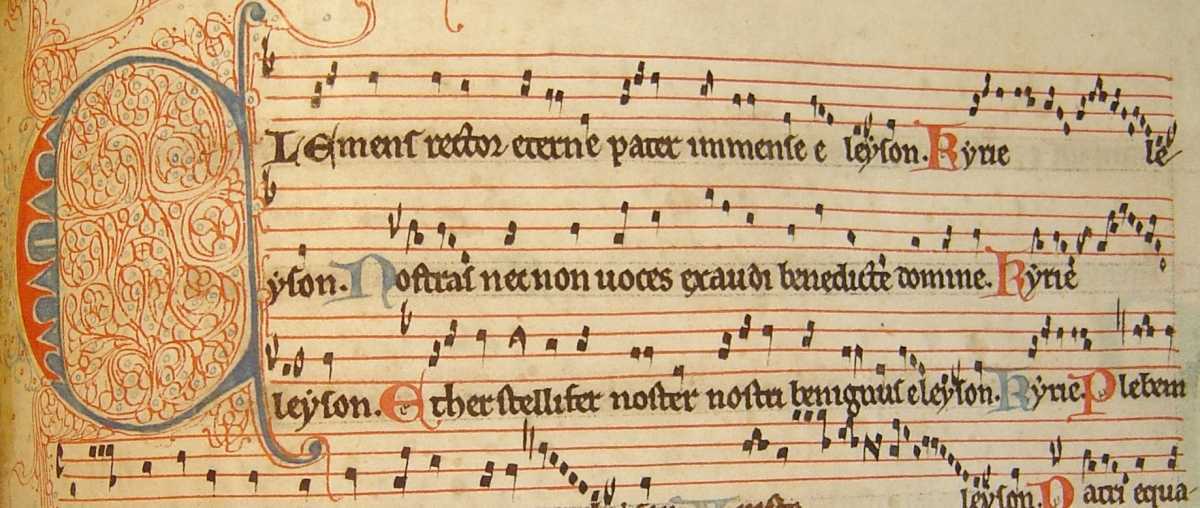 CLEmens rector eterne pater immense e leyson. Kyrie le
yson. Nostras necnon uoces exaudi benedicte domine. Kyrie
leyson. Ether stellifer noster nostri benignus eleyson. Kyrie. Plebem
leyson. Patri equa